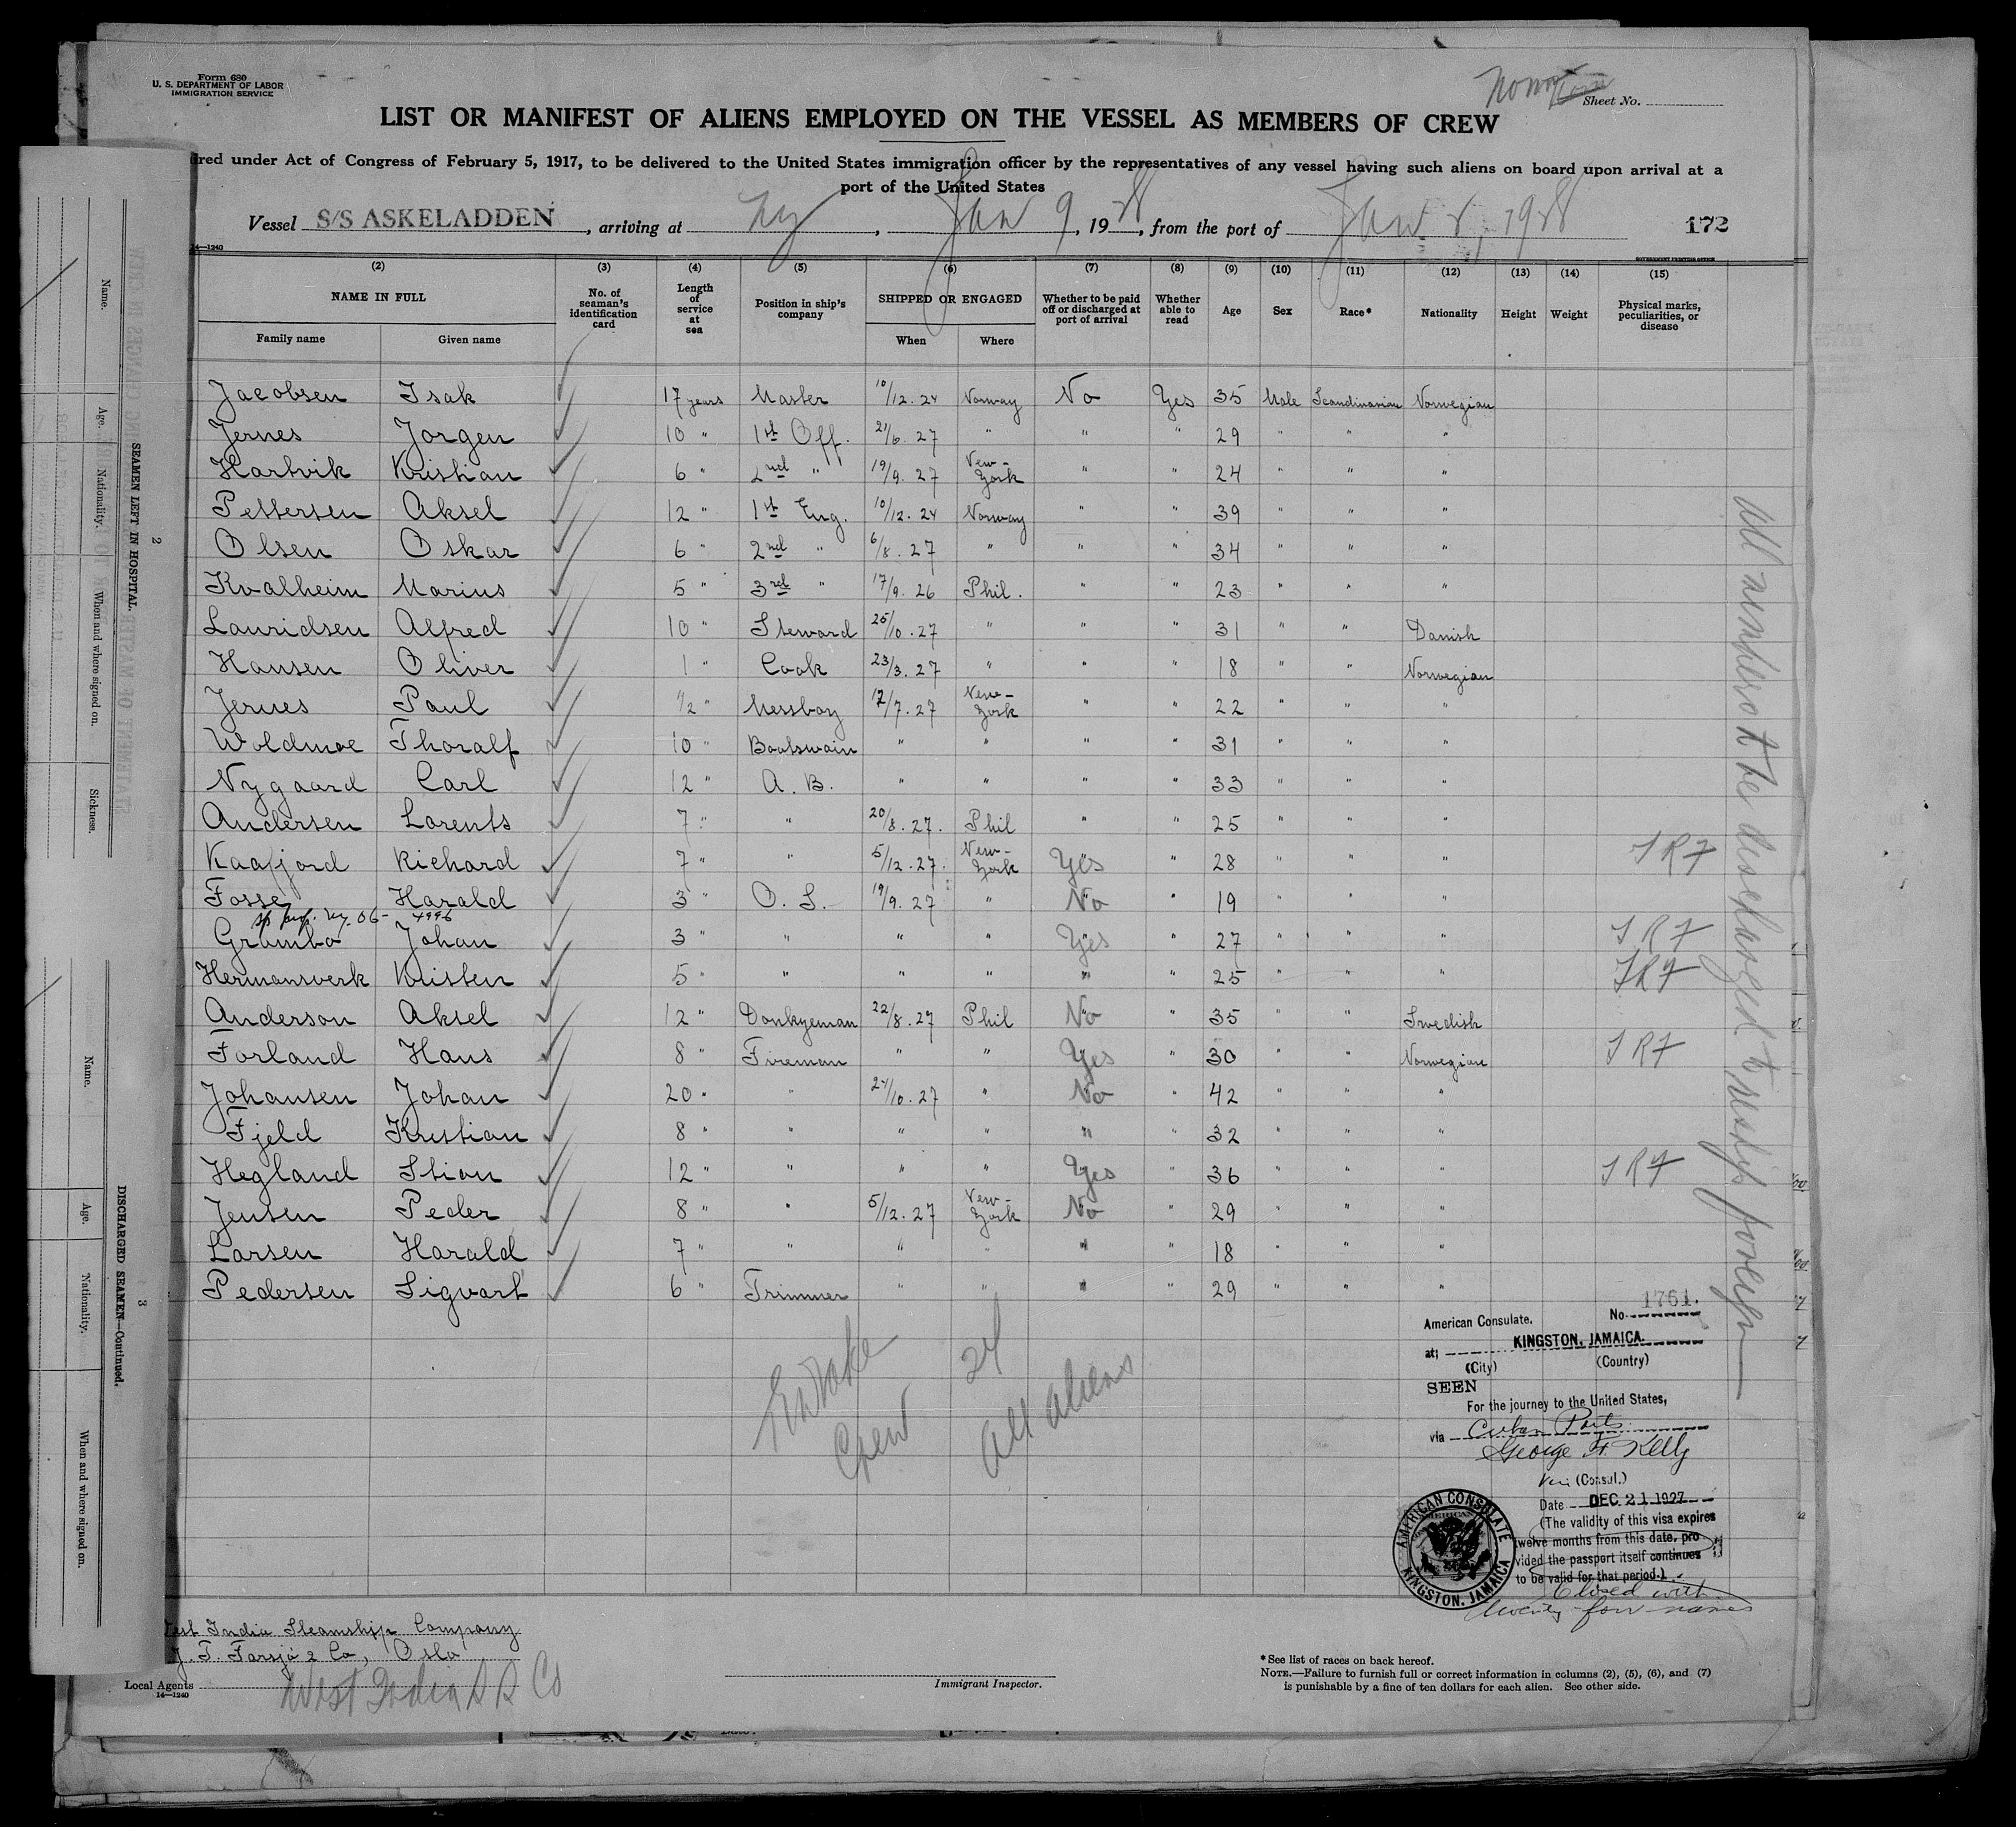 Form 680
U. S. DEPARTMENT OF LABOR
IMMIGRATION SERVICE
Sheet No.
LIST OR MANIFEST OF ALIENS EMPLOYED ON THE VESSEL AS MEMBERS OF CREW
red under Act of Congress of February 5, 1917, to be delivered to the United States immigration officer by the representatives of any vessel having such aliens on board upon arrival at a
port of the United States
Vessel S/S ASKELADDEN, arriving at Ny, Jan 9, 1928, from the port of Jan. 8, 1928 172
14—1240
GOVERNMENT PRINTING OFFICE
(2) (3) (4) (5) (6) (7) (8) (9) (10) (11) (12) (13) (14) (15)
NAME IN FULL No. of seaman's identification card Length of service at sea Position in ship's company SHIPPED OR ENGAGED Whether to be paid off or discharged at port of arrival Whether able to read Age Sex Race* Nationality Height Weight Physical marks, peculiarities, or disease
Family name Given name When Where
Jacobsen Isak 17 years Master 10/12.24 Norway No Yes 35 Male Scandinavian Norwegian
Jernes Jorgen 10 " 1st Off. 21/6.27 " " " 29 " " "
Hartvik Kristian 6 " 2nd " 19/9.27 New-York " " 24 " " "
Pettersen Aksel 12 " 1st Eng. 10/12.24 Norway " " 39 " " "
Olsen Oskar 6 " 2nd " 6/8.27 " " " 34 " " "
Kvalheim Marius 5 " 3rd " 17/9.26 Phil. " " 23 " " "
Lauridsen Alfred 10 " Steward 25/10.27 " " " 31 " " Danish
Hansen Oliver 1 " Cook 23/3.27 " " " 18 " " Norwegian
Jernes Paul 1/2 " Messboy 12/7.27 New-York " " 22 " " "
Woldmoe Thoralf 10 " Boatswain " " " " 31 " " "
Nygaard Carl 12 " A. B. " " " " 33 " " "
Andersen Lorents 7 " " 20/8.27. Phil " " 25 " " "
Kaafjord Richard 7 " " 5/12.27. New-York Yes " 28 " " " T R F
Fosse Harald 3 " O. S. 19/9.27 " No " 19 " " "
Grambo Johan 3 " " " " Yes " 27 " " " T R F
Hermansverk Kristen 5 " " " " " " 25 " " " T R F
Anderson Aksel 12 " Donkyeman 22/8.27 Phil No " 35 " " Swedish
Forland Hans 8 " Fireman " " Yes " 30 " " Norwegian T R F
Johansen Johan 20 " " 24/10.27 " No " 42 " " "
Fjeld Kristian 8 " " " " " " 32 " " "
Hegland Stian 12 " " " " Yes " 36 " " " T R F
Jensen Peder 8 " " 5/12.27 New-York No " 29 " " "
Larsen Harald 7 " " " " " " 18 " " "
Pedersen Sigvart 6 " Trimmer " " " " 29 " " "
Crew 24
All aliens
American Consulate. No. 1761.
at: KINGSTON, JAMAICA.
(City) (Country)
SEEN
For the journey to the United States,
via Cuban Ports
George F. Kelly
(Consul.)
Date DEC 21 1927
(The validity of this visa expires
twelve months from this date, pro-
vided the passport itself continues
to be valid for that period.)
Closed with
twenty four names
AMERICAN CONSULATE
KINGSTON, JAMAICA
est India Steamship Company
Oslo
Local Agents West India S S Co
14—1240
Immigrant Inspector.
*See list of races on back hereof.
NOTE.—Failure to furnish full or correct information in columns (2), (5), (6), and (7)
is punishable by a fine of ten dollars for each alien. See other side.
2
SEAMEN LEFT IN HOSPITAL.
Name. Age. Nationality. When and where signed on. Sickness.
3
DISCHARGED SEAMEN—Continued.
Name. Age. Nationality. When and where signed on.